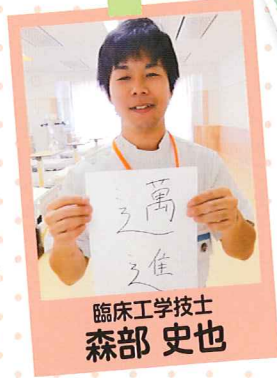 邁
進
臨床工学技士
森部 史也